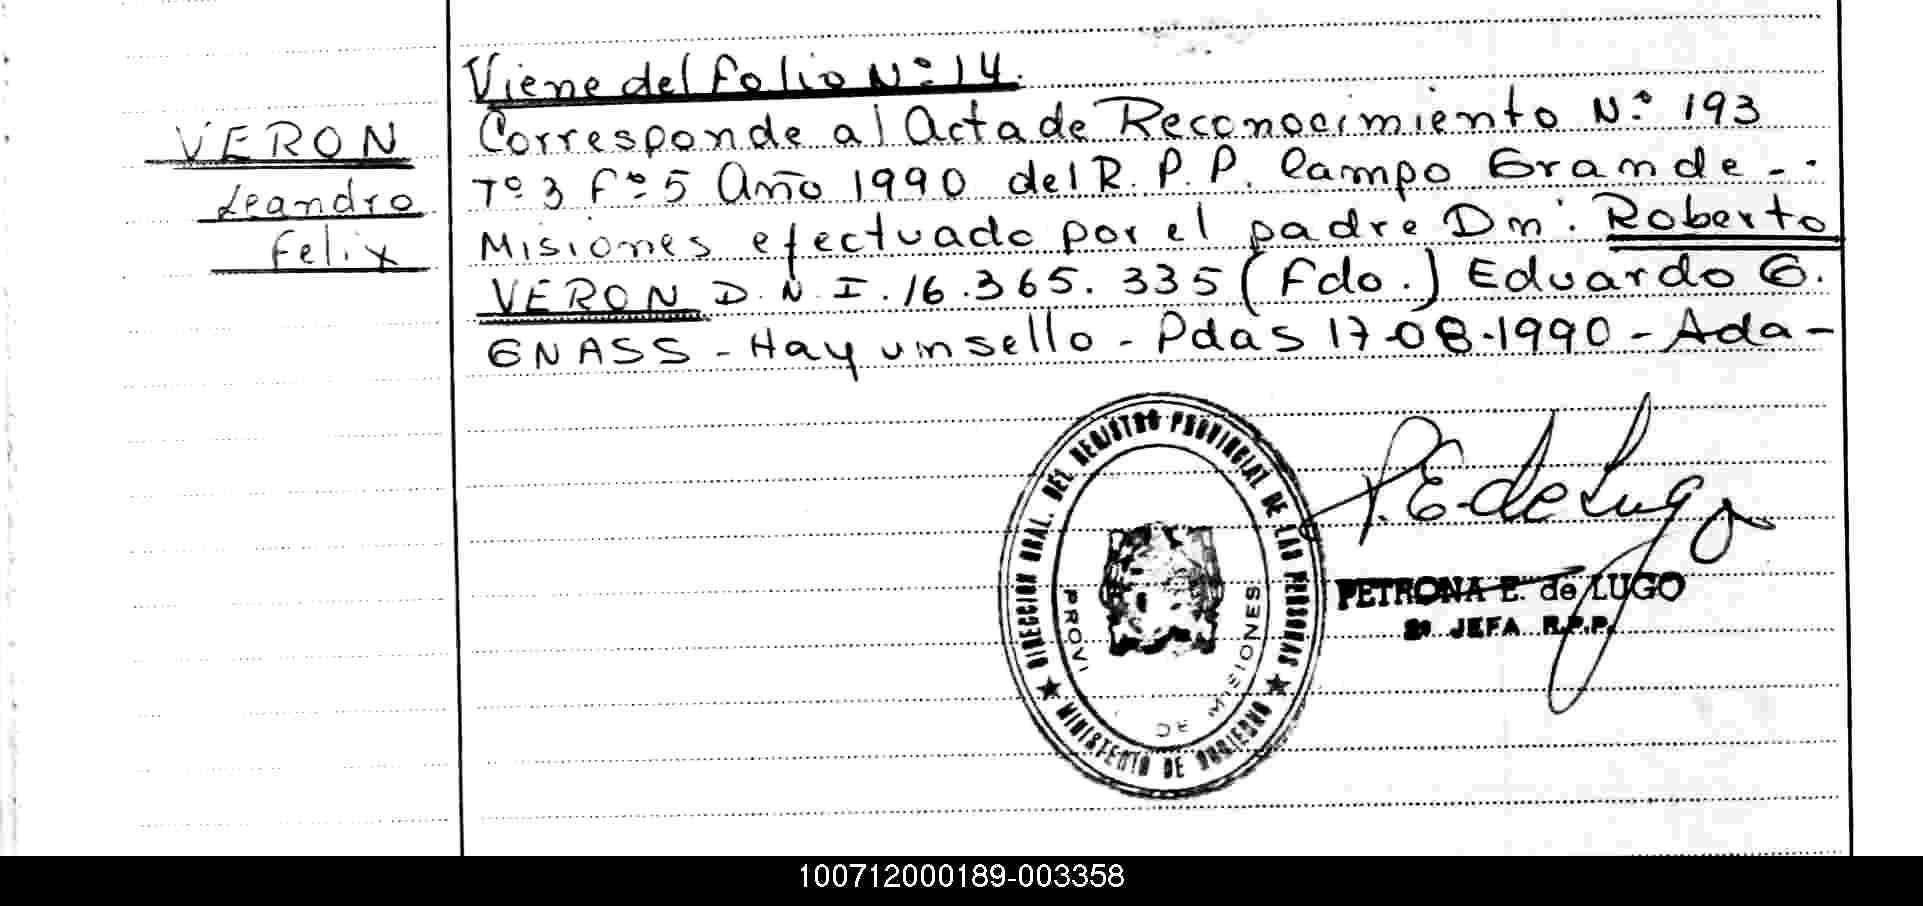 Viene del folio Nº 14.
VERON
Leandro
Felix
Corresponde al Acta de Reconocimiento Nº 193
Tº 3 Fº 5 Año 1990 del R. P. P. Campo Grande -.
Misiones efectuado por el padre Dn. Roberto
VERON D. N. I. 16.365.335 (Fdo.) Eduardo G.
GNASS - Hay un sello - Pdas 17-08-1990 - Ada -
DIRECCION GRAL. DEL REGISTRO PROVINCIAL DE LAS PERSONAS
★ MINISTERIO DE GOBIERNO ★
PROVI
DE MISIONES
P.E. de Lugo
PETRONA E. de LUGO
2º JEFA R.P.P.
100712000189-003358